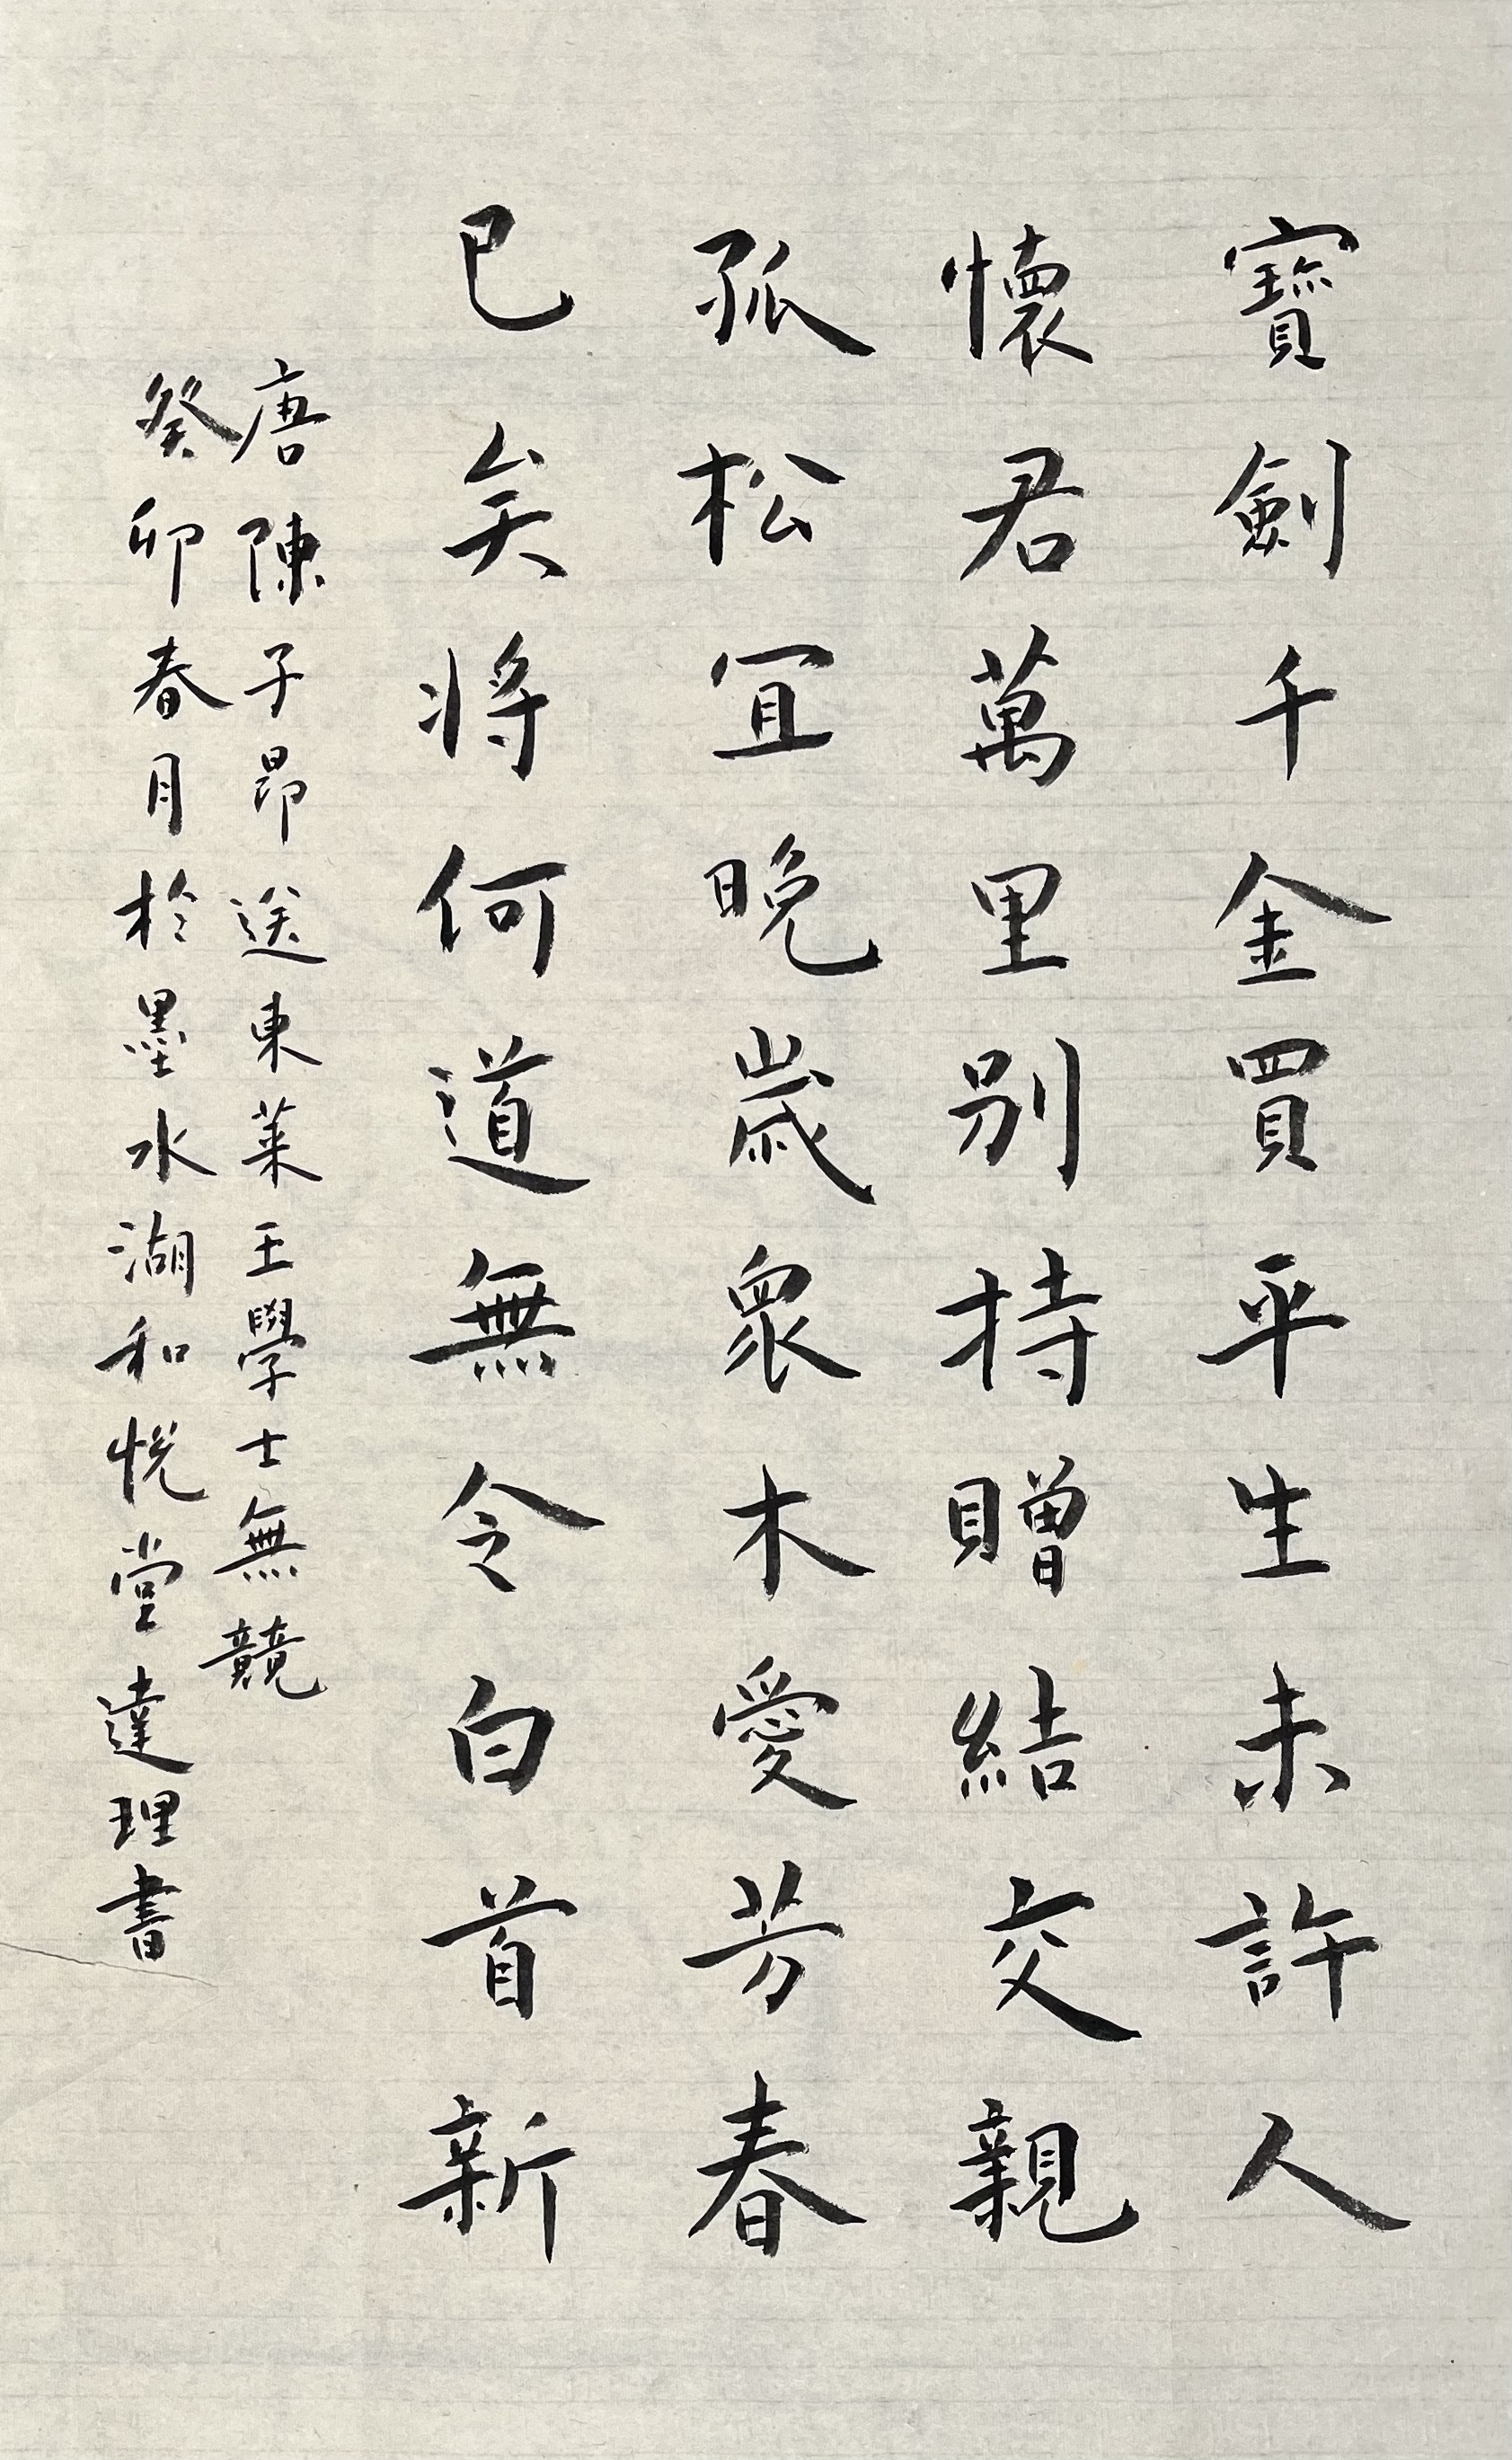 寶劍千金買平生未許人
懷君萬里別持贈結交親
孤松宜晚歲衆木愛芳春
已矣將何道無令白首新
唐陳子昂送東萊王學士無競
癸卯春月於墨水湖和悅堂達理書